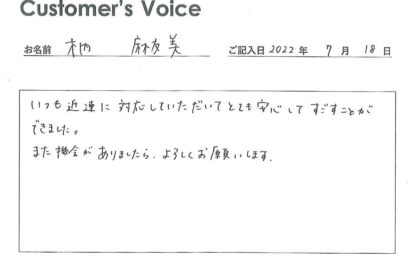 Customer's Voice
お名前 柄 麻友美 ご記入日 2022 年 7 月 18 日
いつも 近速に 対応していただいて とても 安心して すごすことが
できました。
また 機会が ありましたら、よろしくお願いします。